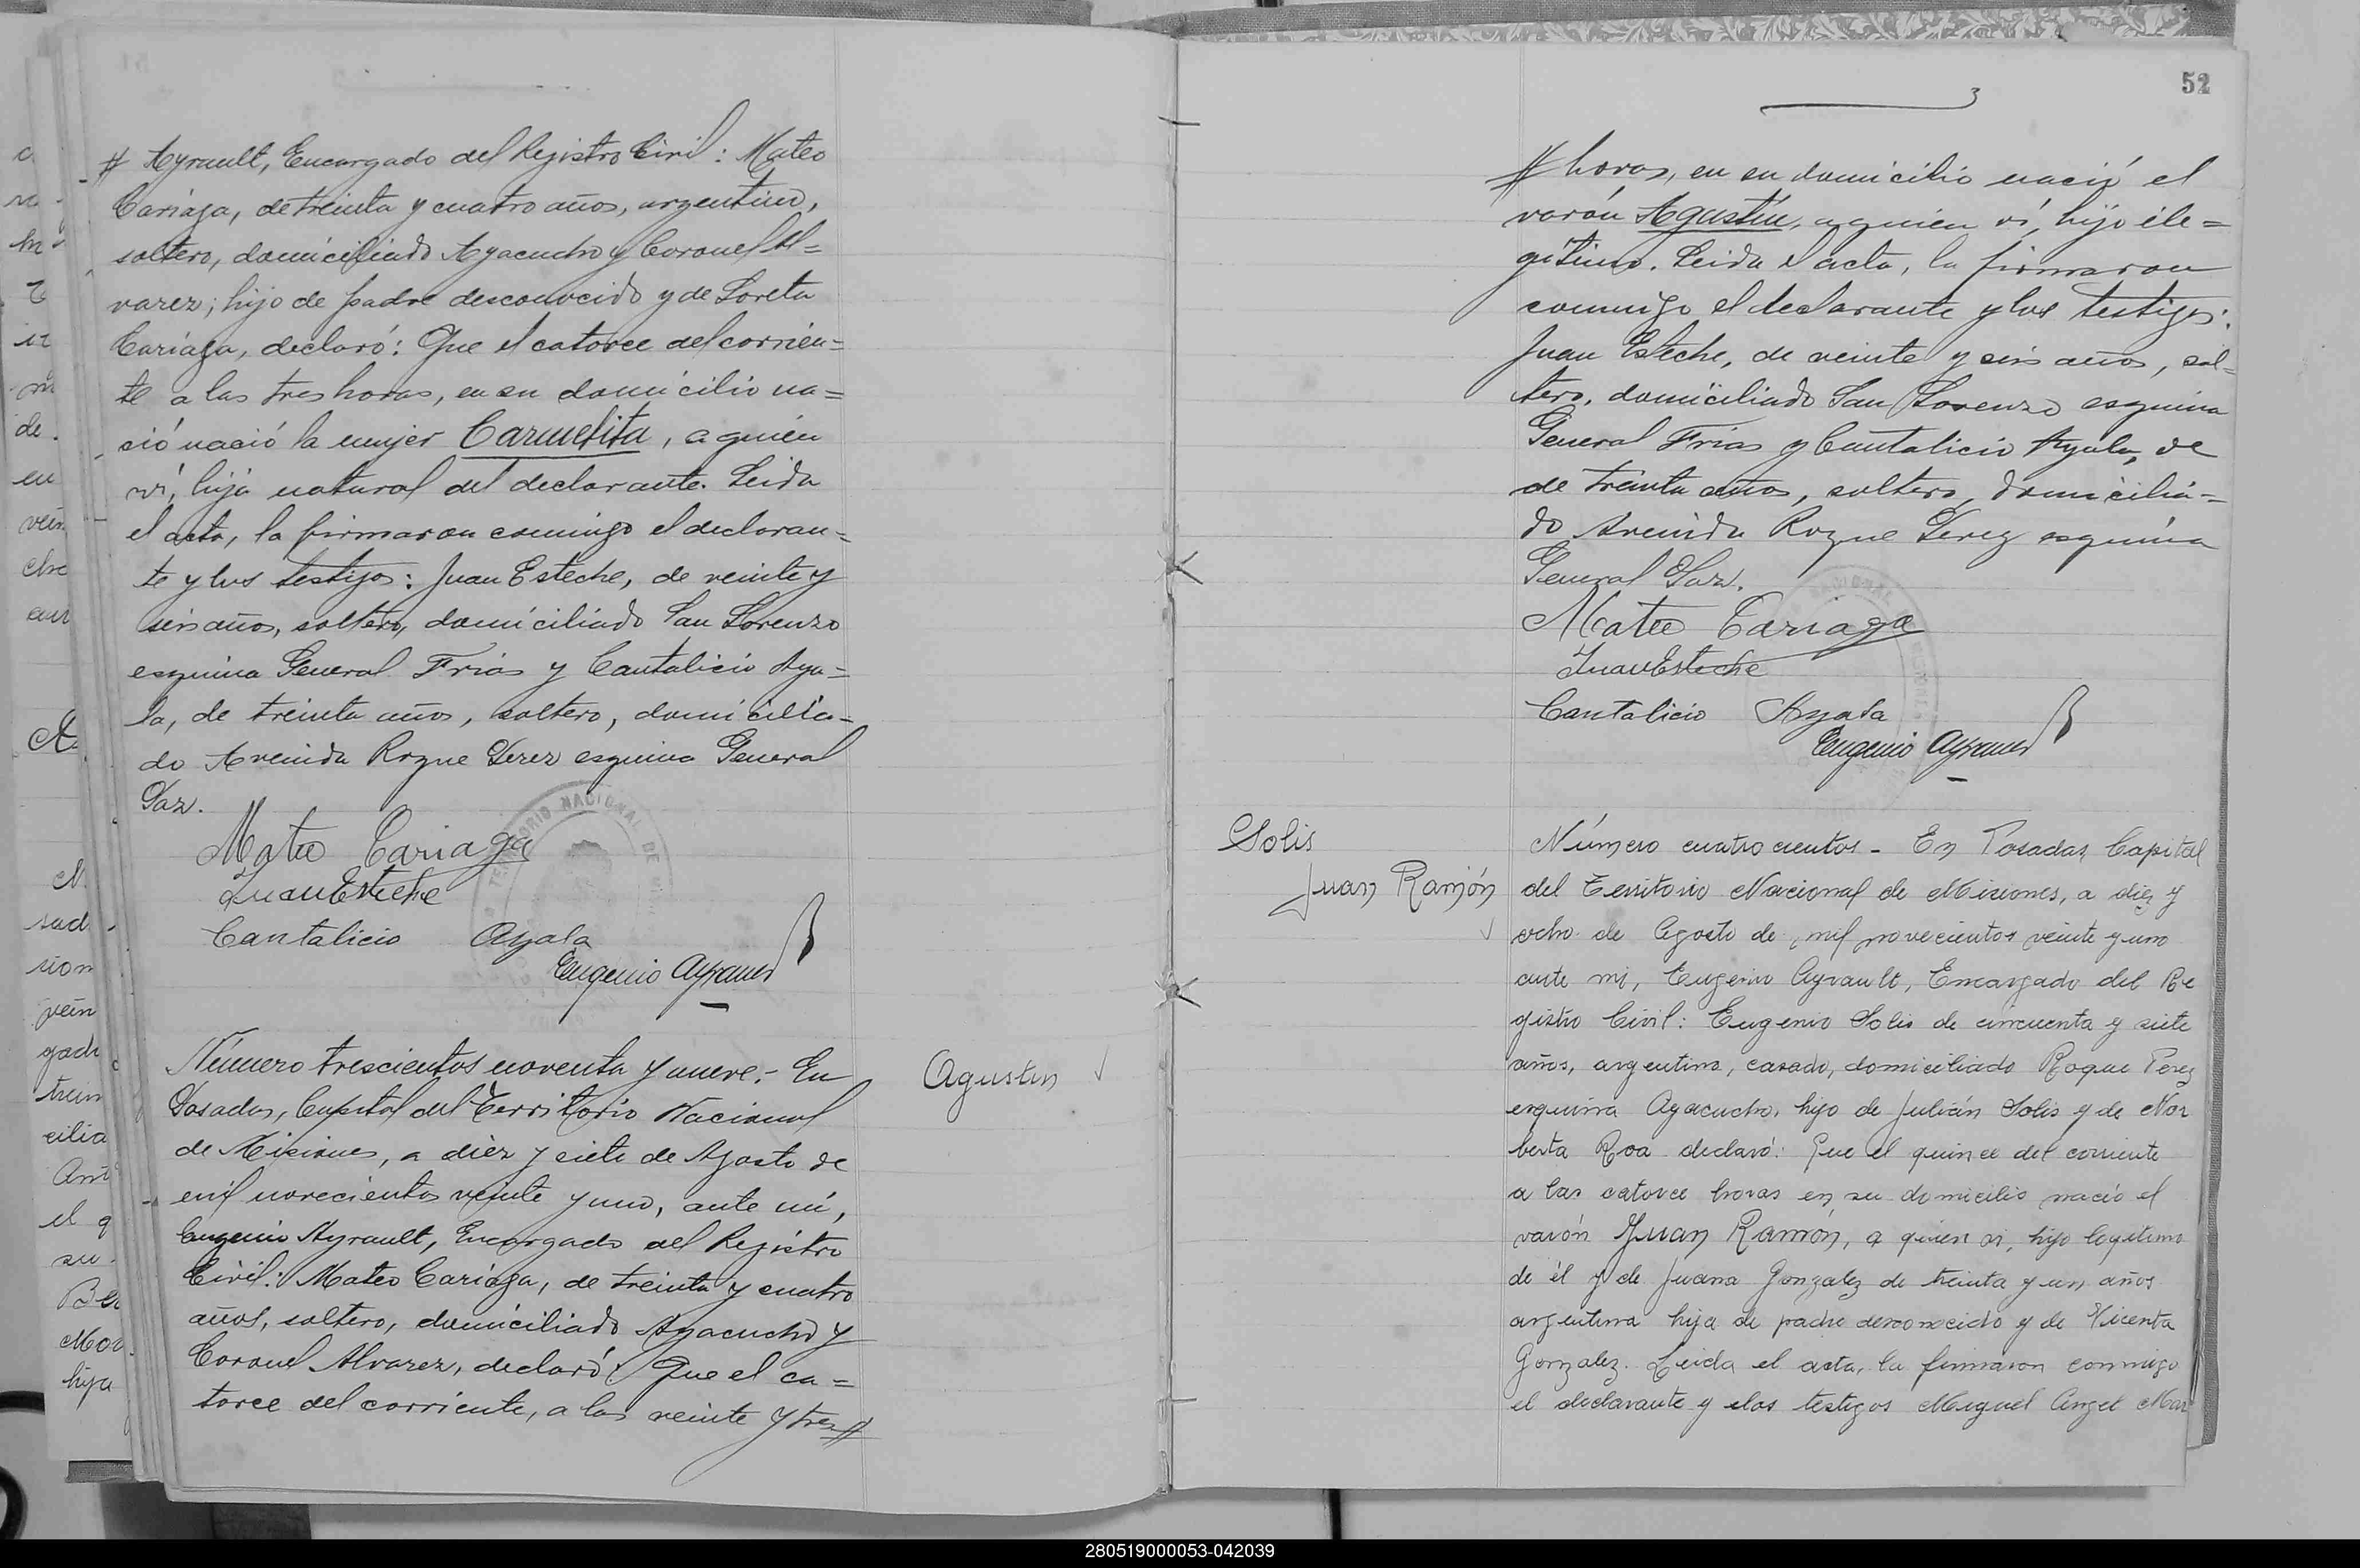 # Ayrault, Encargado del Registro Civil: Mateo
Cariaga, de treinta y cuatro años, argentino,
soltero, domiciliado Ayacucho y Coronel Al=
varez; hijo de padre desconocido y de Loreta
Cariaga, declaró: Que el catorce del corrien=
te a las tres horas, en su domicilio na=
ció nació la mujer Carmelita, a quien
ví, hija natural del declarante. Leida
el acta, la firmaron conmigo el declaran=
te y los testigos: Juan Esteche, de veinte y
seis años, soltero, domiciliado San Lorenzo
esquina General Frías y Cantalicio Aya=
la, de treinta años, soltero, domicilia=
do Avenida Roque Perez esquina General
Paz.
Mateo Cariaga
Juan Esteche
Cantalicio Ayala
Eugenio Ayrault
TERRITORIO NACIONAL DE
Número trescientos noventa y nueve.- En
Posadas, Capital del Territorio Nacional
de Misiones, a diez y siete de Agosto de
mil novecientos veinte y uno, ante mí,
Eugenio Ayrault, Encargado del Registro
Civil: Mateo Cariaga, de treinta y cuatro
años, soltero, domiciliado Ayacucho y
Coronel Alvarez, declaró: Que el ca=
torce del corriente, a las veinte y tres #
Agustin
52
# horas, en su domicilio nació el
varón Agustín, a quien ví, hijo ile=
gitimo. Leida el acta, la firmaron
conmigo el declarante y los testigos:
Juan Esteche, de veinte y seis años, sol=
tero, domiciliado San Lorenzo esquina
General Frías y Cantalicio Ayala, de
de treinta años, soltero, domicilia=
do Avenida Roque Perez esquina
General Paz.
Mateo Cariaga
Juan Esteche
Cantalicio Ayala
Eugenio Ayrault
Solis
Juan Ramón
Número cuatrocientos - En Posadas Capital
del Territorio Nacional de Misiones, a diez y
ocho de Agosto de mil novecientos veinte y uno
ante mi, Eugenio Ayrault, Encargado del Re
gistro Civil: Eugenio Solis de cincuenta y siete
años, argentino, casado, domiciliado Roque Perez
esquina Ayacucho, hijo de Julián Solis y de Nor
berta Roa declaró: Que el quince del corriente
a las catorce horas en su domicilio nació el
varón Juan Ramón, a quien vi, hijo legitimo
de él y de Juana Gonzalez de treinta y un años
argentina hija de padre desconocido y de Vicenta
Gonzalez. Leida el acta, la firmaron conmigo
el declarante y los testigos Miguel Angel Mar
280519000053-042039